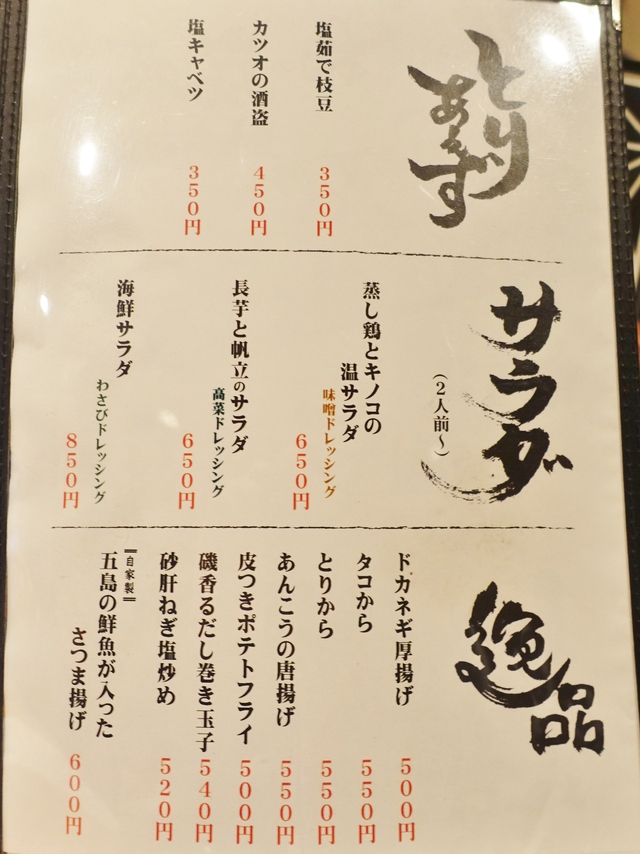 とりあえず
塩茹で枝豆
350円
カツオの酒盗
450円
塩キャベツ
350円
サラダ
(2人前〜)
蒸し鶏とキノコの
温サラダ
味噌ドレッシング
650円
長芋と帆立のサラダ
高菜ドレッシング
650円
海鮮サラダ
わさびドレッシング
850円
逸品
ドカネギ厚揚げ
500円
タコから
550円
とりから
550円
あんこうの唐揚げ
550円
皮つきポテトフライ
500円
磯香るだし巻き玉子
540円
砂肝ねぎ塩炒め
520円
自家製
五島の鮮魚が入った
さつま揚げ
600円